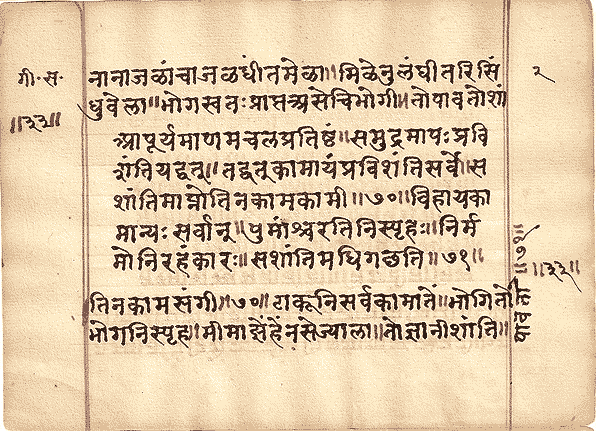 गी॰ स॰
॥३३॥
नानाजळांचाजळधीतमेळा॥मिळेनुलंघीतरिसिं
धुवेला॥भोगसतःप्राप्तअसेचिभोगी॥तोपावतोशां
आपूर्यमाणमचलप्रतिष्ठं॥समुद्रमापःप्रवि
शंतियद्वत्॥तद्वत्कामायंप्रविशंतिसर्वे॥स
शांतिमाप्नोतिनकामकामी॥७०॥विहायका
मान्यःसर्वान्॥पुमांश्चरतिनिस्पृहः॥निर्म
मोनिरहंकारः॥सशांतिमधिगछति॥७१॥
तिनकामसंगी॥७०॥टाकूनिसर्वकामातें॥भोगितो
भोगनिस्पृह॥मीमाझेंहेंनसेज्याला॥तोज्ञानीशांति॥
२
पावतो॥७१॥
॥३३॥